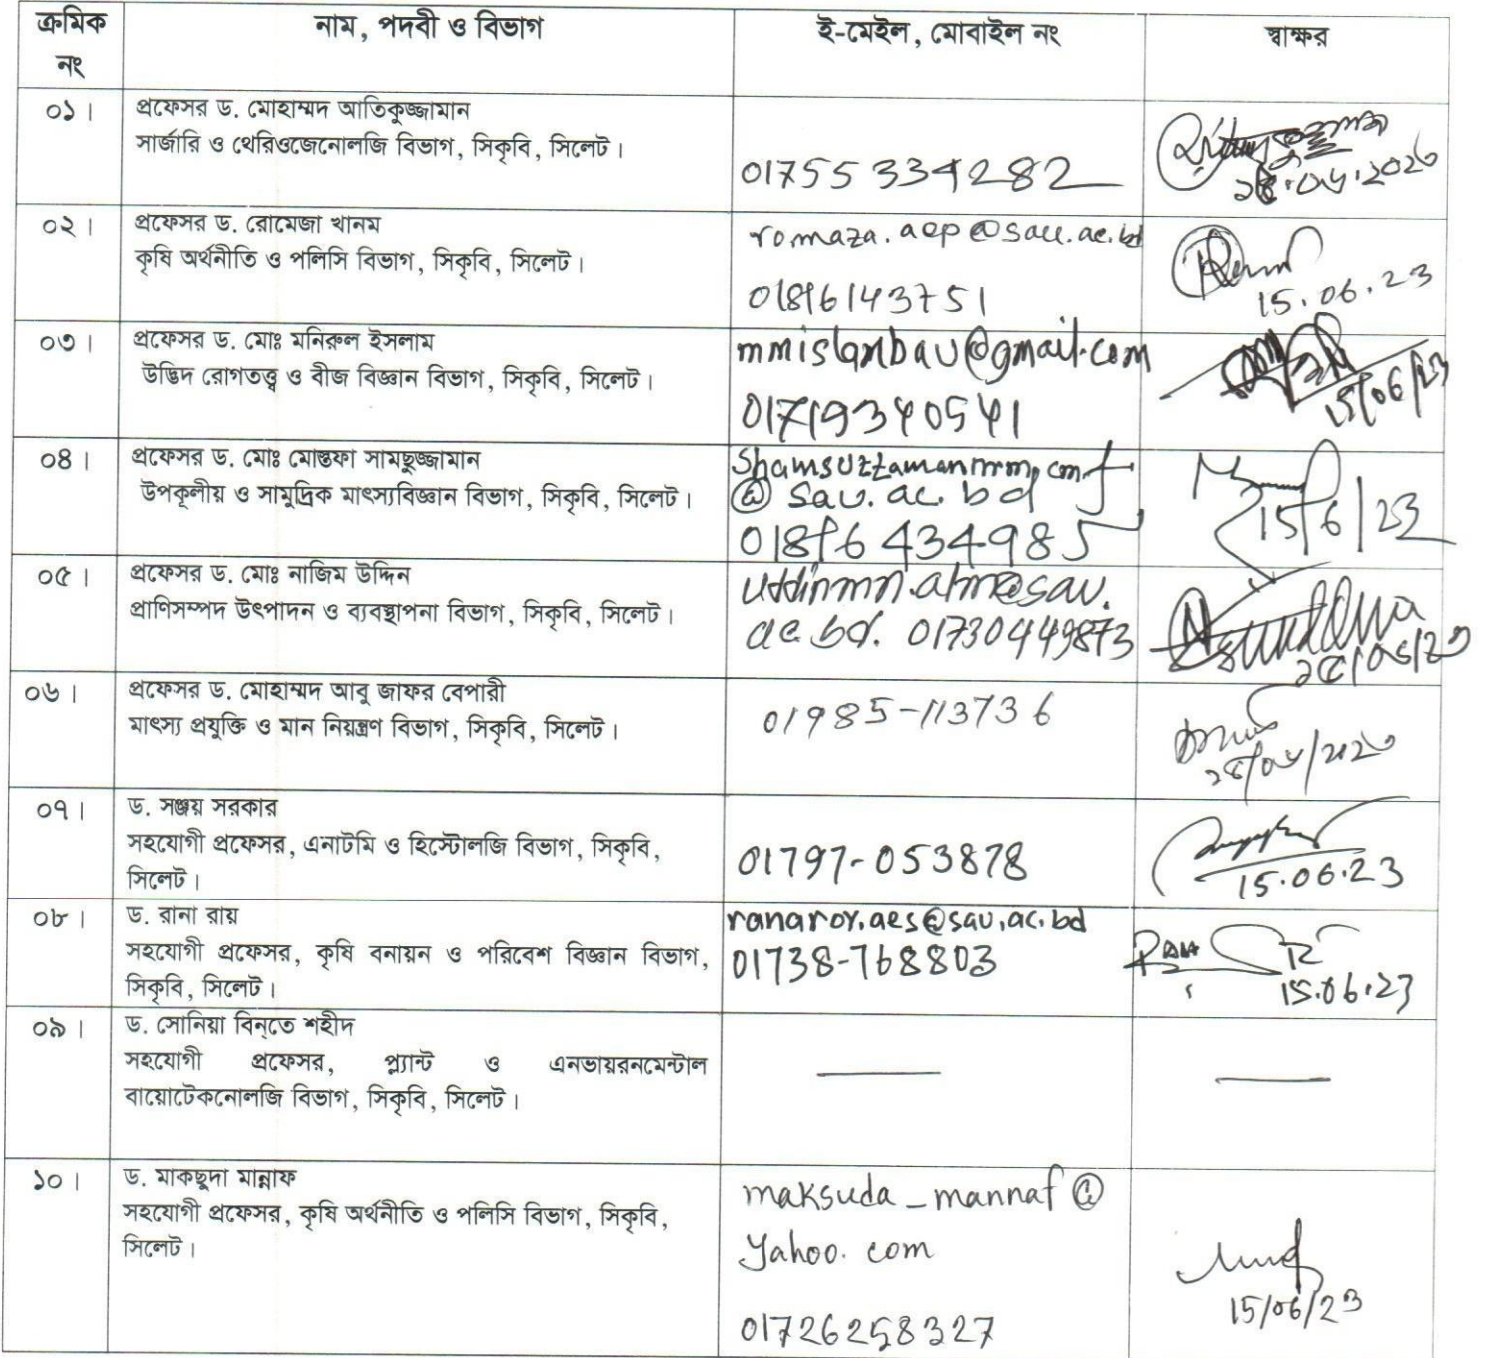 ক্রমিক নং	নাম, পদবী ও বিভাগ	ই-মেইল, মোবাইল নং	স্বাক্ষর
০১। প্রফেসর ড. মোহাম্মদ আতিকুজ্জামান
সার্জারি ও থেরিওজেনোলজি বিভাগ, সিকৃবি, সিলেট।
01755 334282
১৫.০৬.২০২৩
০২। প্রফেসর ড. রোমেজা খানম
কৃষি অর্থনীতি ও পলিসি বিভাগ, সিকৃবি, সিলেট।
romaza.aep@sau.ac.bd
01896143751
15.06.23
০৩। প্রফেসর ড. মোঃ মনিরুল ইসলাম
উদ্ভিদ রোগতত্ত্ব ও বীজ বিজ্ঞান বিভাগ, সিকৃবি, সিলেট।
mmislambau@gmail.com
01719340541
15/06/23
০৪। প্রফেসর ড. মোঃ মোস্তফা সামছুজ্জামান
উপকূলীয় ও সামুদ্রিক মাৎস্যবিজ্ঞান বিভাগ, সিকৃবি, সিলেট।
shamsuzzamanmm.cmf
@ sau.ac.bd
01896434985
15/6/23
০৫। প্রফেসর ড. মোঃ নাজিম উদ্দিন
প্রাণিসম্পদ উৎপাদন ও ব্যবস্থাপনা বিভাগ, সিকৃবি, সিলেট।
uddinmn.alm@sau.
ac.bd. 01730449873
১৫/০৬/২৩
০৬। প্রফেসর ড. মোহাম্মদ আবু জাফর বেপারী
মাৎস্য প্রযুক্তি ও মান নিয়ন্ত্রণ বিভাগ, সিকৃবি, সিলেট।
01985-113736
১৫/০৬/২০২৩
০৭। ড. সঞ্জয় সরকার
সহযোগী প্রফেসর, এনাটমি ও হিস্টোলজি বিভাগ, সিকৃবি,
সিলেট।
01797-053878
15.06.23
০৮। ড. রানা রায়
সহযোগী প্রফেসর, কৃষি বনায়ন ও পরিবেশ বিজ্ঞান বিভাগ,
সিকৃবি, সিলেট।
ranaroy.aes@sau.ac.bd
01738-768803
15.06.23
০৯। ড. সোনিয়া বিন্‌তে শহীদ
সহযোগী প্রফেসর, প্ল্যান্ট ও এনভায়রনমেন্টাল
বায়োটেকনোলজি বিভাগ, সিকৃবি, সিলেট।
১০। ড. মাকছুদা মান্নাফ
সহযোগী প্রফেসর, কৃষি অর্থনীতি ও পলিসি বিভাগ, সিকৃবি,
সিলেট।
maksuda_mannaf@
yahoo.com
01726258327
15/06/23